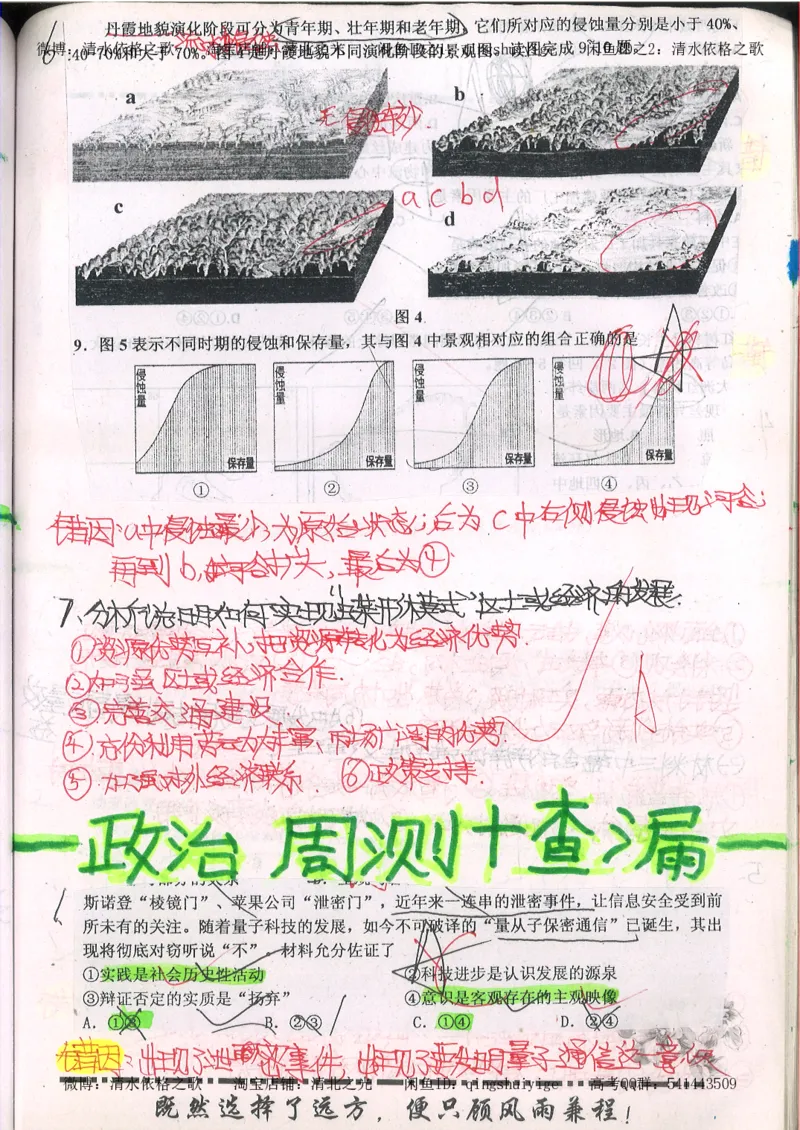 6
丹霞地貌演化阶段可分为青年期、壮年期和老年期，它们所对应的侵蚀量分别是小于 40%、
40-70%和大于 70%。图 4 是丹霞地貌不同演化阶段的景观图。读图完成 9-10 题。
a
b
无侵蚀
c
a c b d
d
图 4
9．图 5 表示不同时期的侵蚀和保存量，其与图 4 中景观相对应的组合正确的是
侵蚀量 保存量 ①
侵蚀量 保存量 ②
侵蚀量 保存量 ③
侵蚀量 保存量 ④
错因：a中侵蚀最少，为原始状态；后为 c 中右侧侵蚀出现河谷；
再到 b，河谷扩大，最后为④
7、分析说明如何实现"菱形模式"区域经济的发展.
①资源优势互补，把资源转化为经济优势.
②加强区域经济合作.
③完善交通建设
④充分利用劳动力丰富、市场广阔的优势.
⑤加强对外经济联系. ⑥政策支持.
政治 周测十查漏
斯诺登“棱镜门”、苹果公司“泄密门”，近年来一连串的泄密事件，让信息安全受到前
所未有的关注。随着量子科技的发展，如今不可破译的“量从子保密通信”已诞生，其出
现将彻底对窃听说“不”。材料允分佐证了
①实践是社会历史性活动 ②科技进步是认识发展的源泉
③辩证否定的实质是“扬弃” ④意识是客观存在的主观映像
A．①③ B．②③ C．①④ D．②④
错因：出现了泄密事件，出现了要发明量子通信这一意识
微博：清水依格之歌 淘宝店铺：清北之光 闲鱼ID：qingshuiyige 高考QQ群：541443509
既然选择了远方，便只顾风雨兼程！